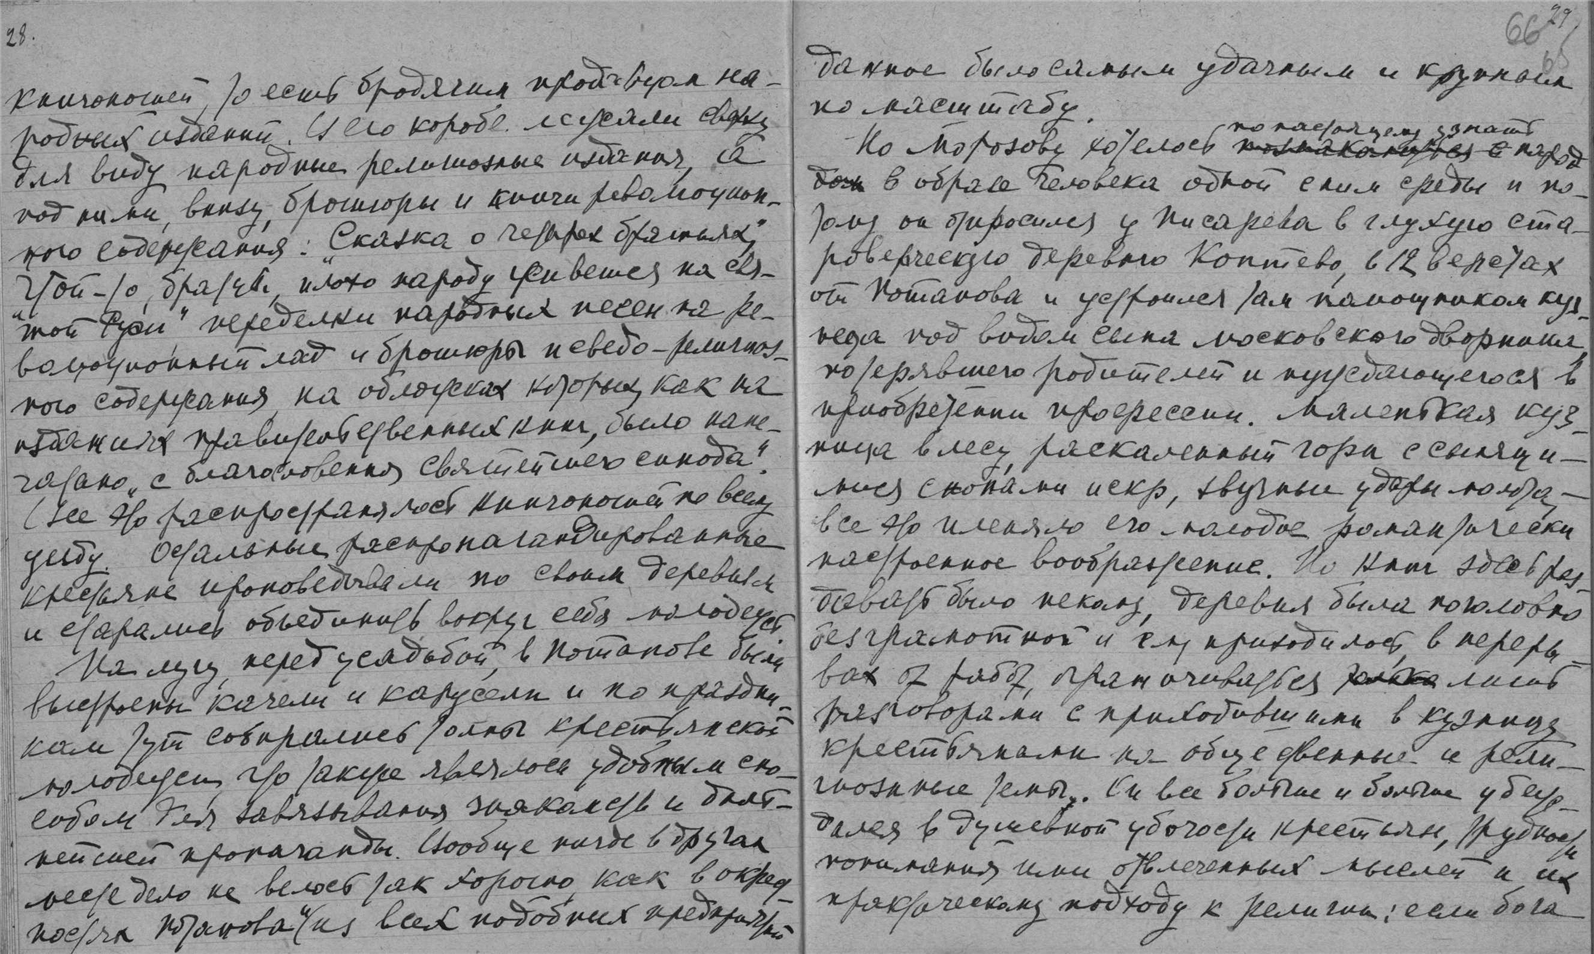 28.
книгоношей, то есть бродячим продавцом на-
родных изданий. В его коробе лежали сверху
для виду народные религиозные издания, а
под ними, внизу, брошюры и книги революцион-
ного содержания: "Сказка о четырех братьях",
"Чтой-то, братцы, плохо народу живется на свя-
той Руси" переделки народных песен на ре-
волюционный лад и брошюры псевдо-религиоз-
ного содержания, на обложках которых, как на
изданиях правительственных книг, было напе-
чатано "с благословения святейшего синода".
Все это распространялось книгоношей по всему
уезду. Остальные распропагандированные
крестьяне проповедывали по своим деревням
и старались объединить вокруг себя молодежь.
На лугу, перед усадьбой, в Потапове были
выстроены качели и карусели и по праздни-
кам тут собирались толпы крестьянской
молодежи, что также являлось удобным спо-
собом для завязывания знакомств и даль-
нейшей пропаганды. Вообще нигде в другом
месте дело не велось так хорошо, как в окрест-
ностях Потапова и из всех подобных предприятий
29
66
65
данное было самым удачным и крупным
по масштабу.
по настоящему узнать
Но Морозову хотелось познакомиться с народ
дом в образе человека одной с ним среды и по-
тому он отпросился у Писарева в глухую ста-
роверческую деревню Коптево, в 12 верстах
от Потапова и устроился там помощником куз-
неца под видом сына московского дворника,
потерявшего родителей и нуждающегося в
приобретении профессии. Маленькая куз-
ница в лесу, раскаленный горн с сыпящи-
мися снопами искр, звучные удары молота -
все это пленяло его молодое романтически
настроенное воображение. Но книг здесь раз-
давать было некому, деревня была поголовно
безграмотной и ему приходилось, в переры-
вах от работ, ограничиваться только лишь
разговорами с приходившими в кузницу
крестьянами на общественные и рели-
гиозные темы. Он все больше и больше убеж-
дался в душевной убогости крестьян, трудности
понимания ими отвлеченных мыслей и их
практическому подходу к религии: если бога